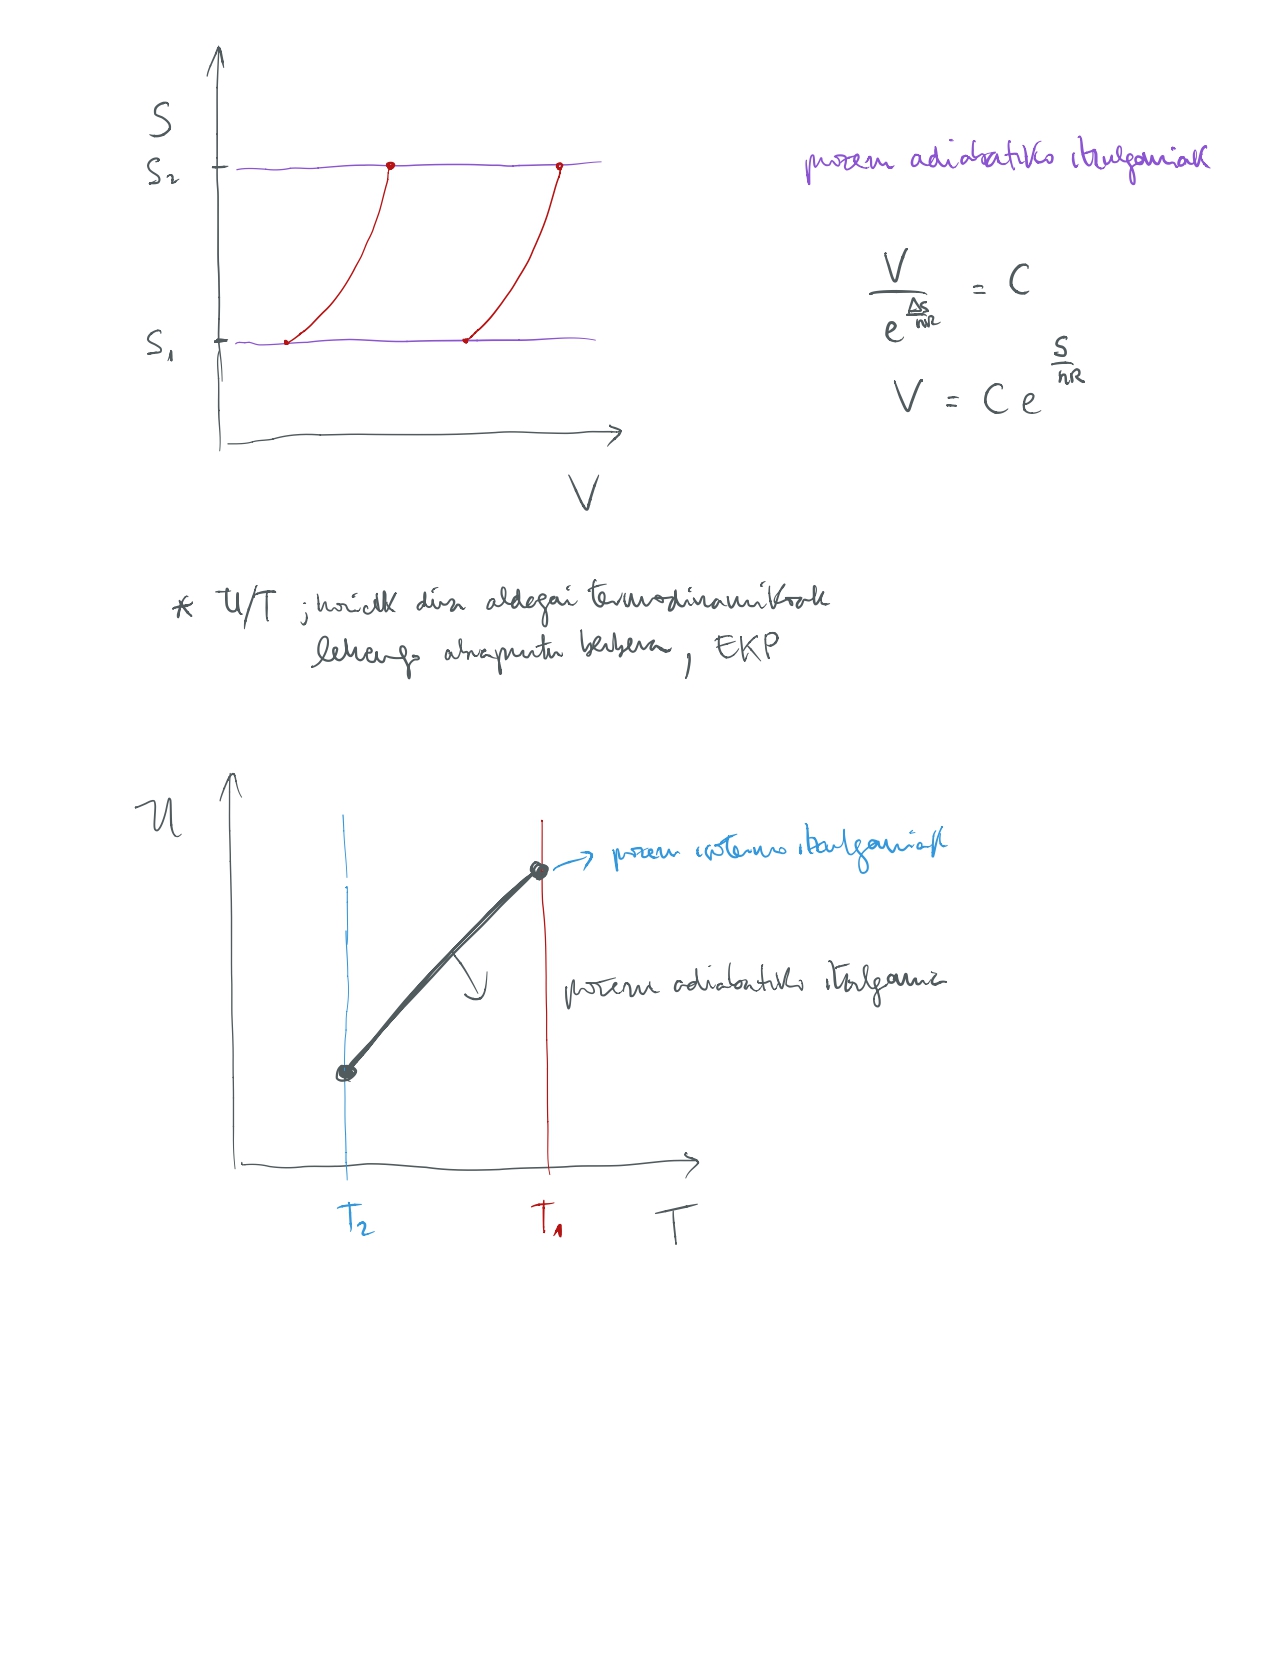 S
S₂
prozesu adiabatiko itzulgarriak
V / e^(ΔS/nR) = C
S₁
V = C e^(S/nR)
V
* U/T ; horiek dira aldagai termodinamikoak
berbera, EKP
U
prozesu isotermo itzulgarriak
prozesu adiabatiko itzulgarria
T₂ T₁ T